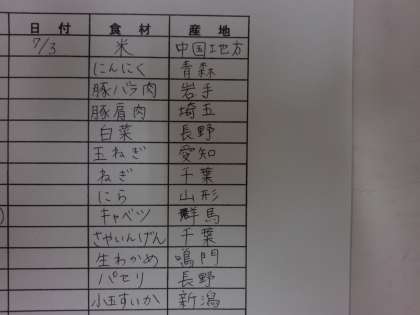 日付 食材 産地
7/3 米 中国地方
にんにく 青森
豚バラ肉 岩手
豚肩肉 埼玉
白菜 長野
玉ねぎ 愛知
ねぎ 千葉
にら 山形
キャベツ 群馬
さやいんげん 千葉
生わかめ 鳴門
パセリ 長野
小玉すいか 新潟